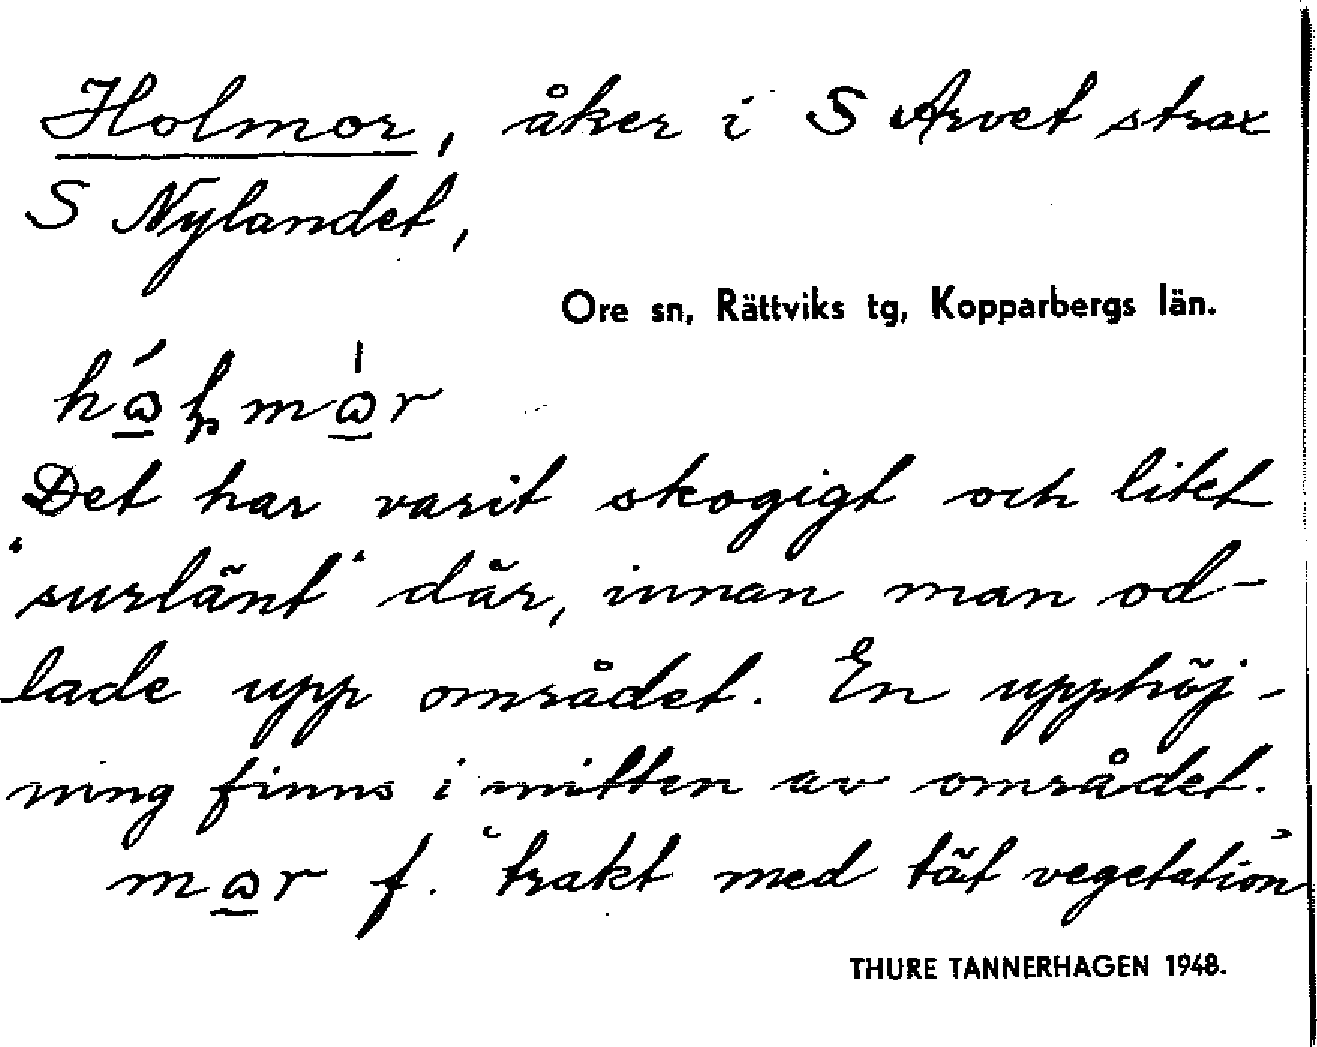 Holmor, åker i S Arvet strax
S Nylandet,
Ore sn, Rättviks tg, Kopparbergs län.
Det har varit skogigt och litet
"surlänt" där, innan man od-
lade upp området. En upphöj-
ning finns i mitten av området.
f. "trakt med tät vegetation"
THURE TANNERHAGEN 1948.